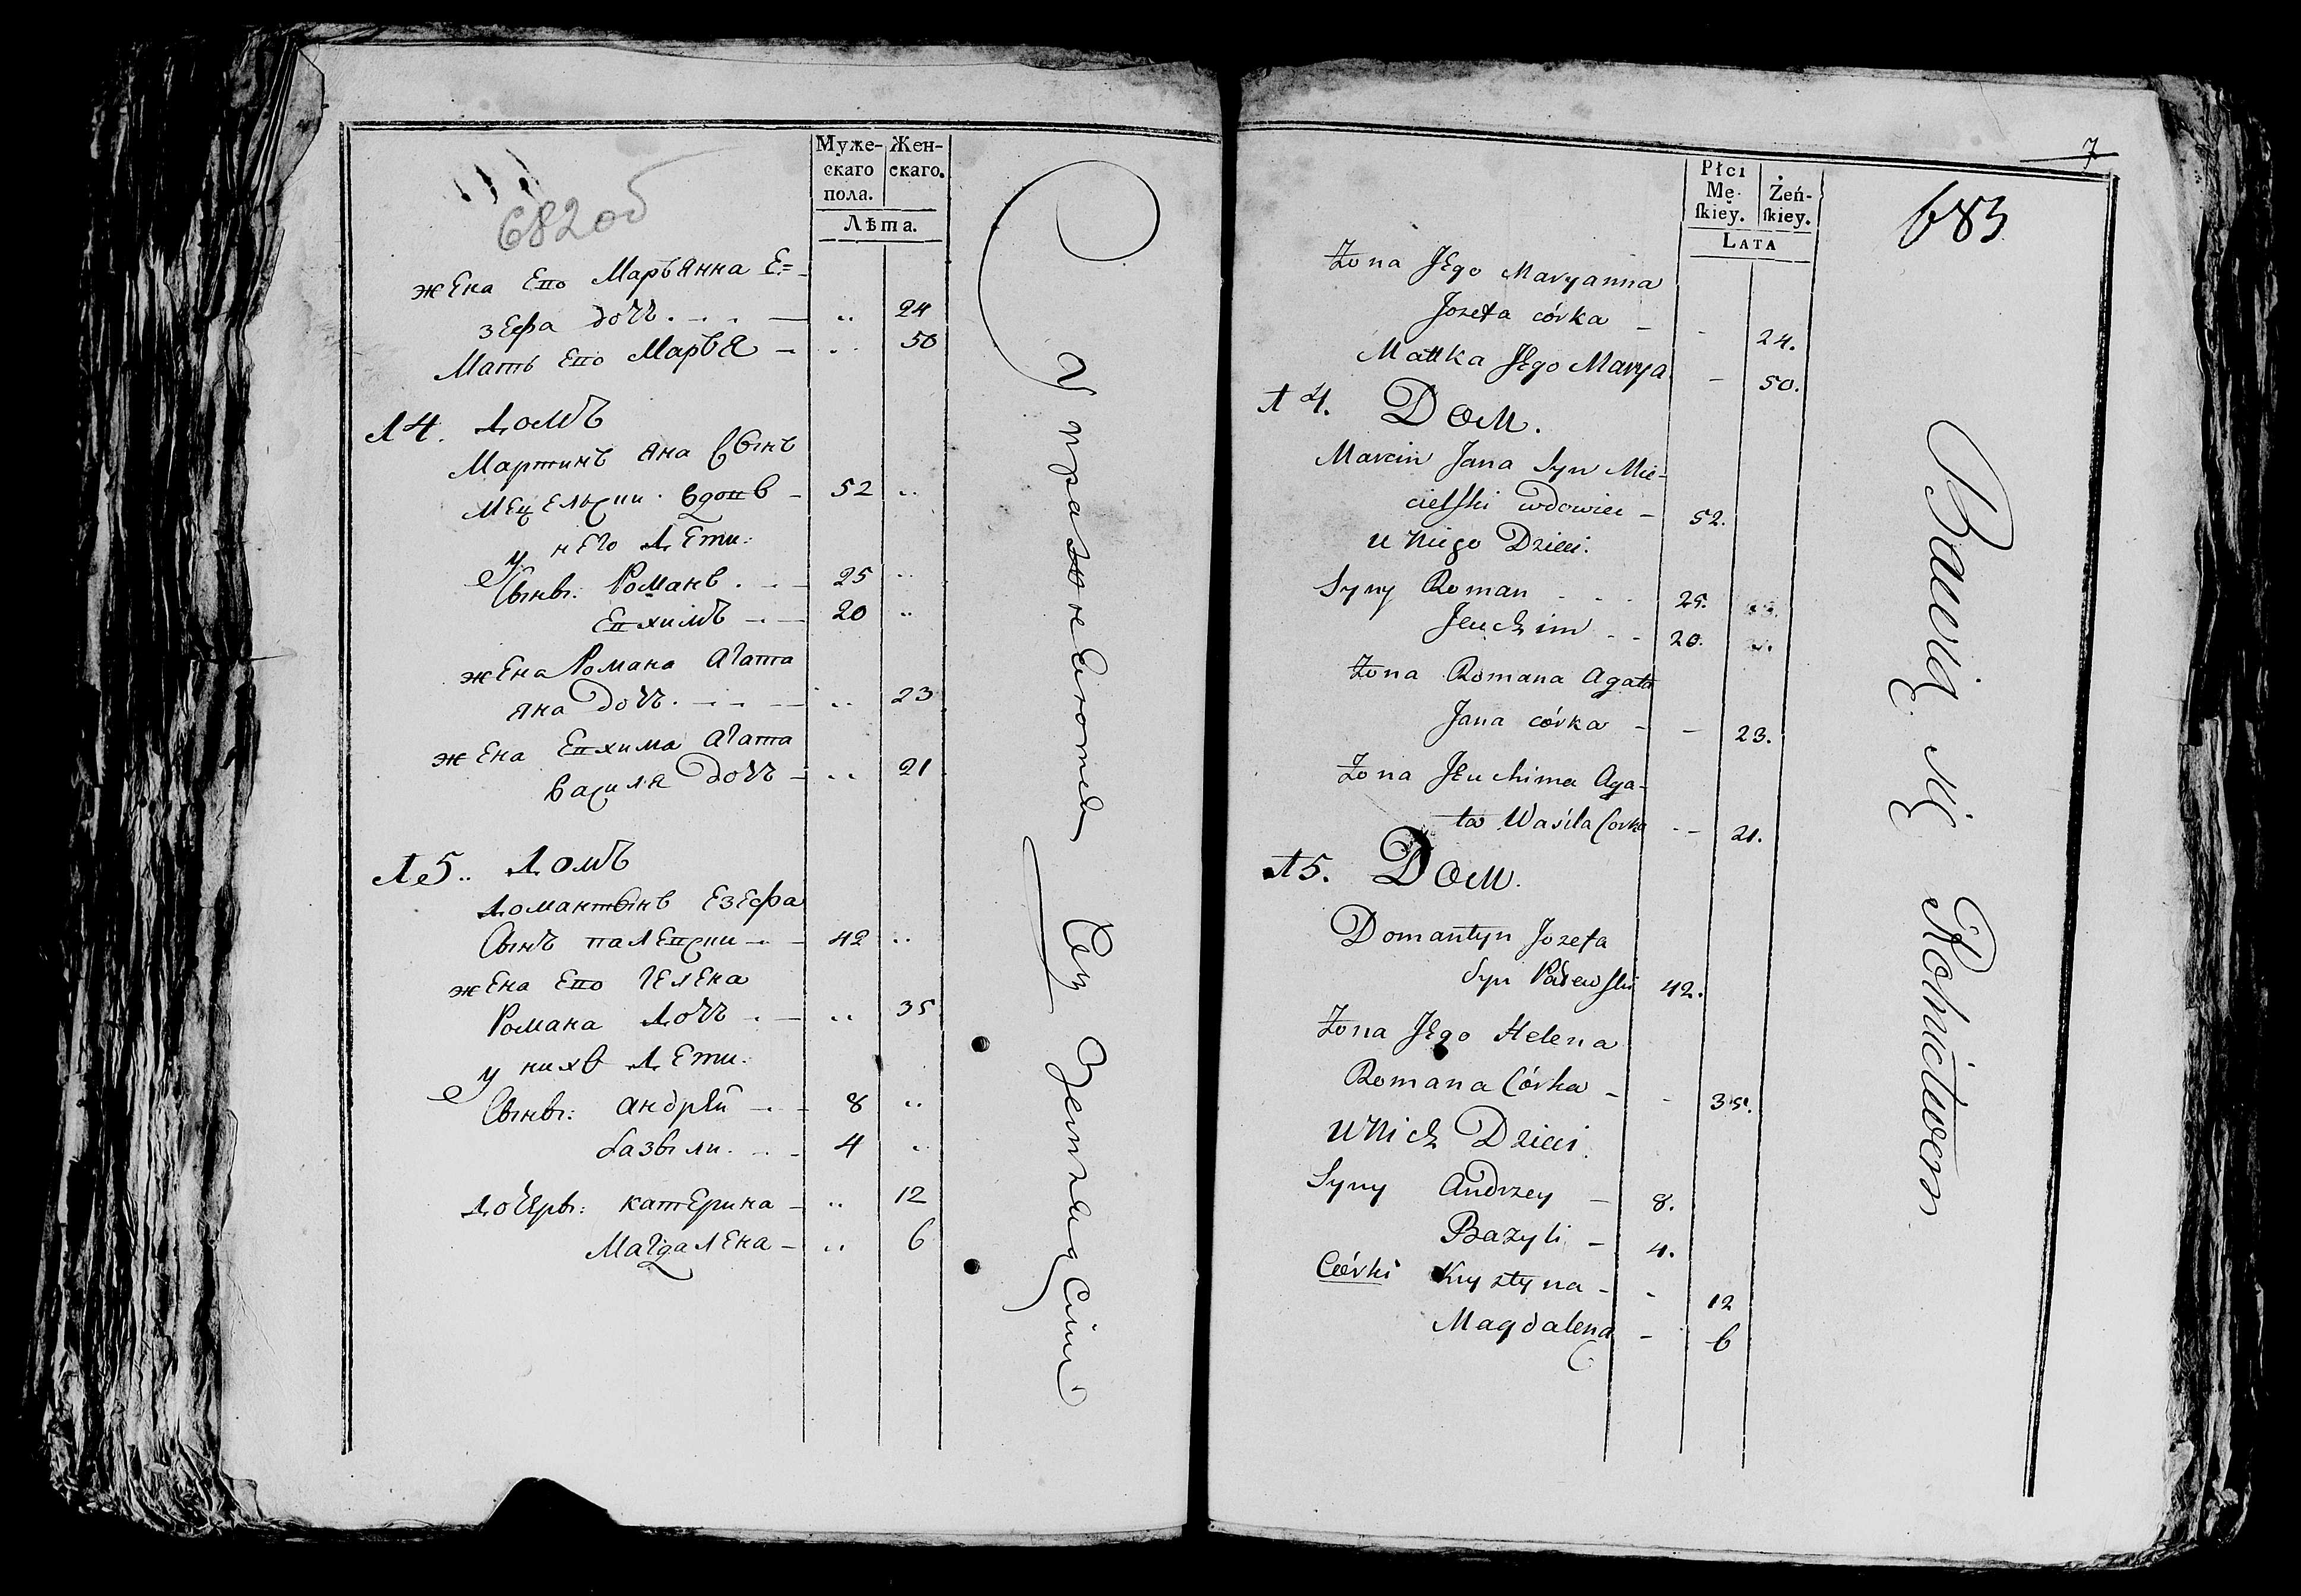 682об
Муже-
скаго
пола.
Жен-
скаго.
Лѣта.
жена его Марьянна Е=
зефа дочь 24
Мать его Марья 50
№ 4. Домъ
Мартинъ Яна Сынъ
Мецельски вдовъ 52
у него Дети:
Сыны: Романъ 25
Евхимъ 20
жена Романа Агата
Яна дочь 23
жена Евхима Агата
Василя дочь 21
№ 5. Домъ
Домантынъ Езефа
Сынъ палевски 42
жена его Гелена
Романа Дочь 35
у нихъ Дети:
Сыны: Андрѣй 8
базыли 4
Дочери: катерина 12
Магдалена 6
Упражняются Сеи Земляд
7
683
Płci
Mę-
skiey.
Żeń-
skiey.
LATA
Żona Jego Maryanna
Jozefa córka 24.
Mattka Jego Marya 50.
№ 4. Dom.
Marcin Jana Syn Mie-
cielski wdowiec 52.
u Niego Dzieci.
Syny Roman 25.
Jeuchim 20.
Żona Romana Agata
Jana córka 23.
Żona Jeuchima Aga-
ta Wasila Corka 21.
№ 5. Dom.
Domantyn Jozefa
Syn Palewski 42.
Żona Jego Helena
Romana Córka 35.
u Nich Dzieci.
Syny Andrzey 8.
Bazyli 4.
Córki Krystyna 12
Magdalena 6
Bawią się Rolnictwem